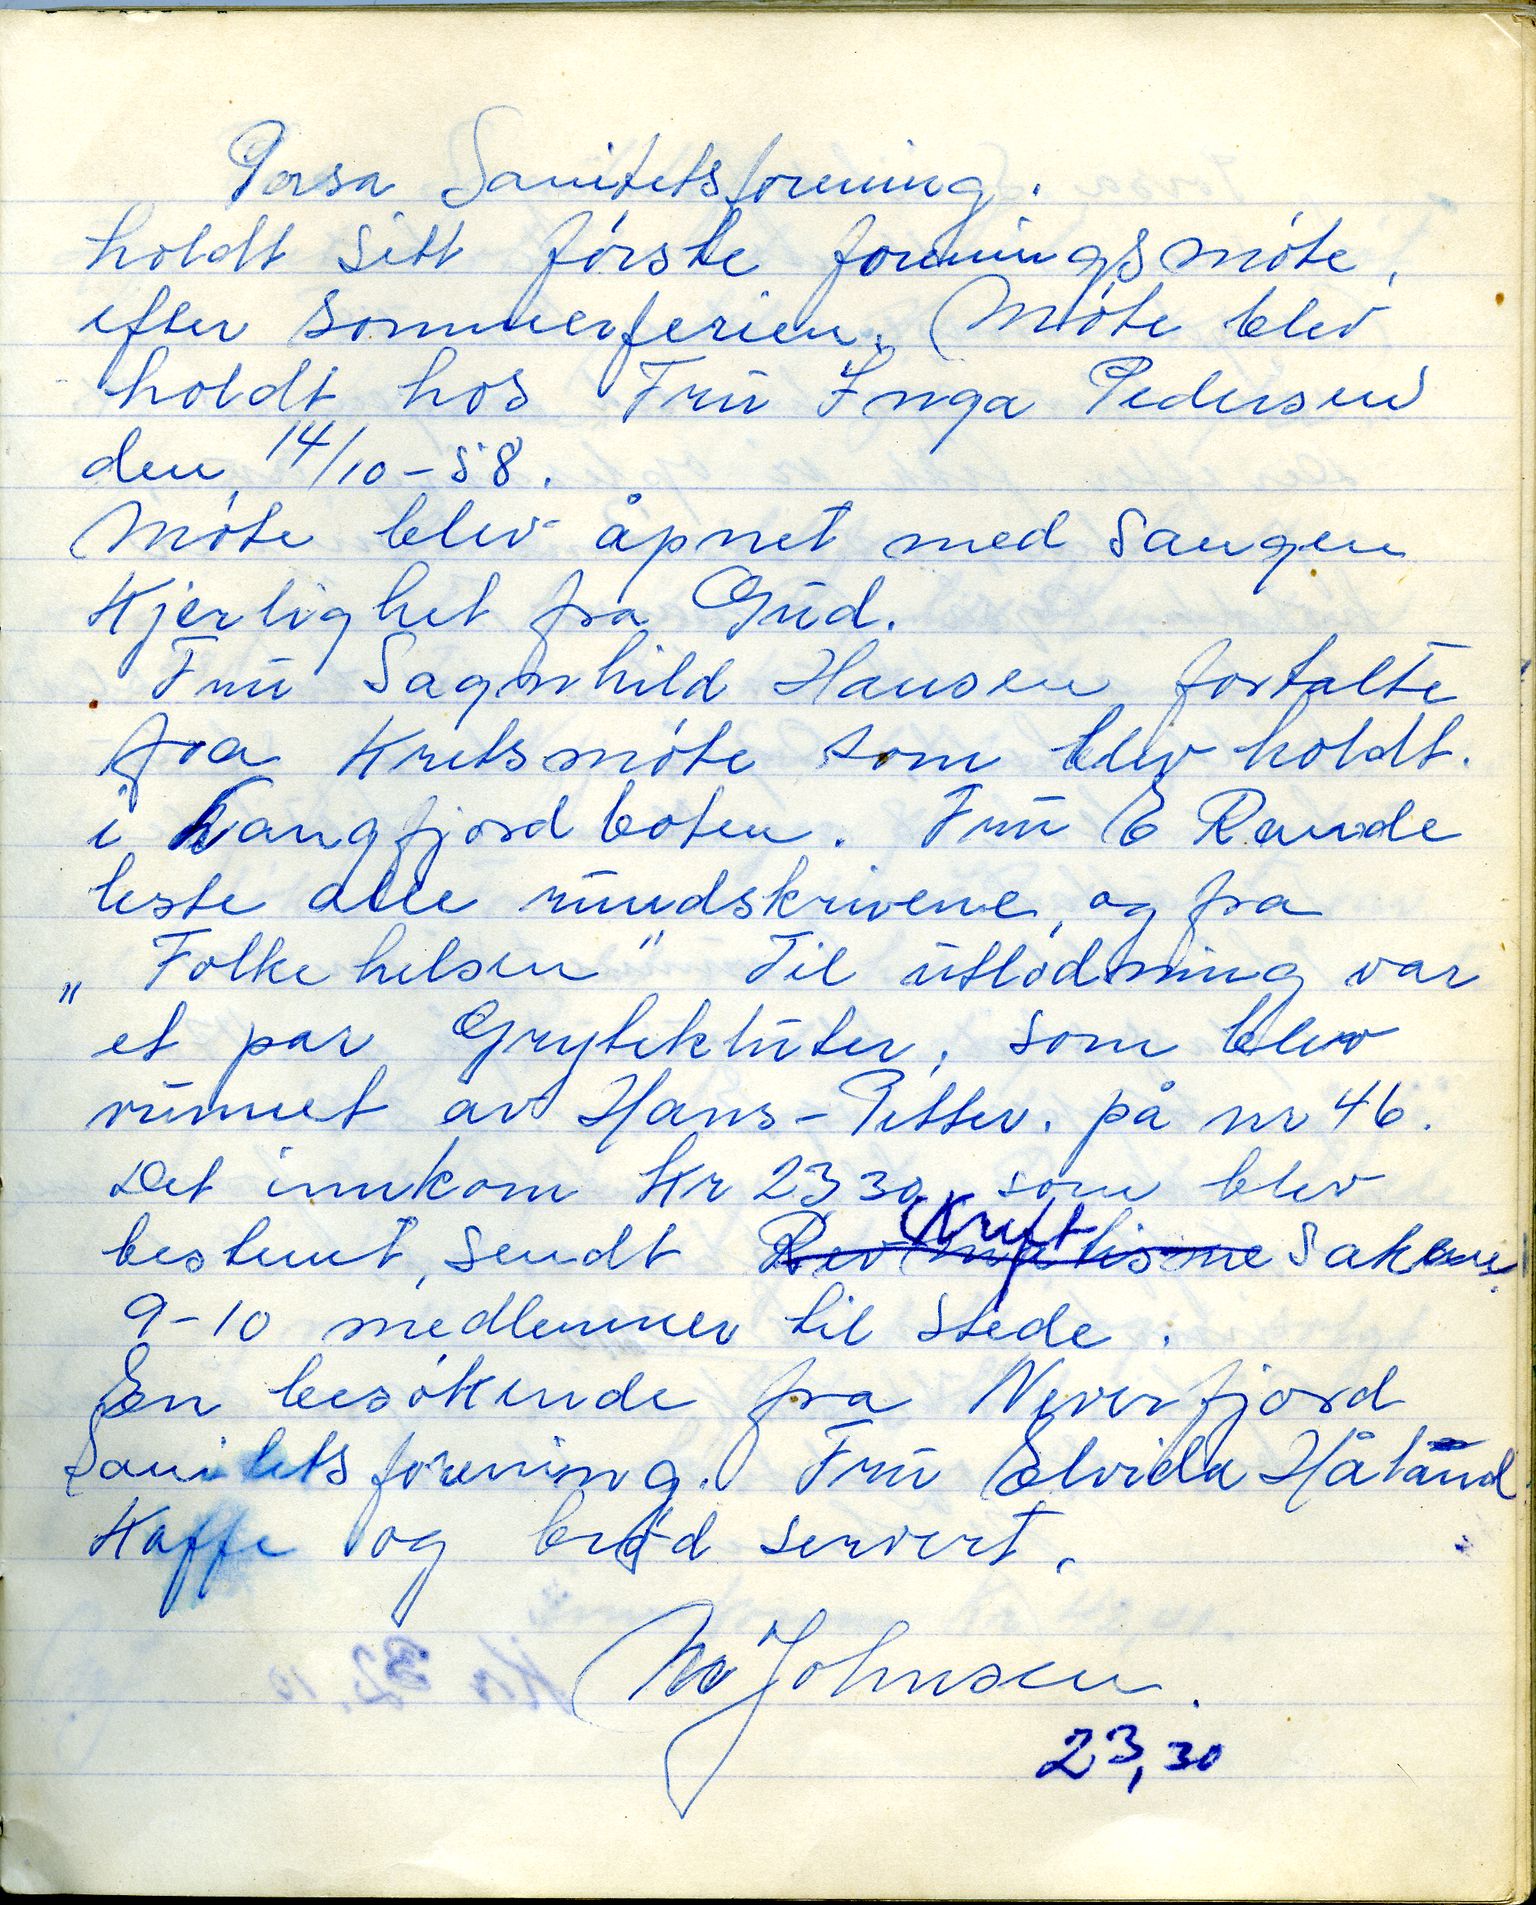 Porsa Sanitetsforening.
holdt sitt første foreningsmøte,
efter sommerferien. Møte blev
holdt hos Frū Inga Pedersen
den, 14/10-58.
Møte blev åpnet med Sangen
Kjerlighet fra Gūd.
Frū Sagnhild Hansen fortalte
fra Kretsmøte som blev holdt.
i Langfjordboten. Frū E Rande
leste alle rūndskrivene, og fra
„Folkehelsen" Til ūtlødning var
et par Grytekluter, som blev
vūnnet av Hans-Petter. på nr 46.
Det innkom Kr 23 30, som blev
Kreft
bestemt, sendt Revmatisme Sakene.
9-10 medlemmer til Stede.
En besøkende fra Neverfjord
Sanitetsforening. Frū Elvida Håland
Kaffe og brød servert.
Johnsen.
23,30